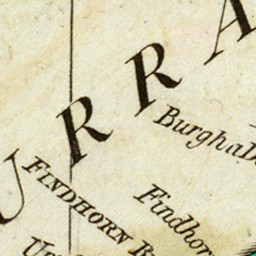 URRA
Burgh
FINDHORN
Findhor